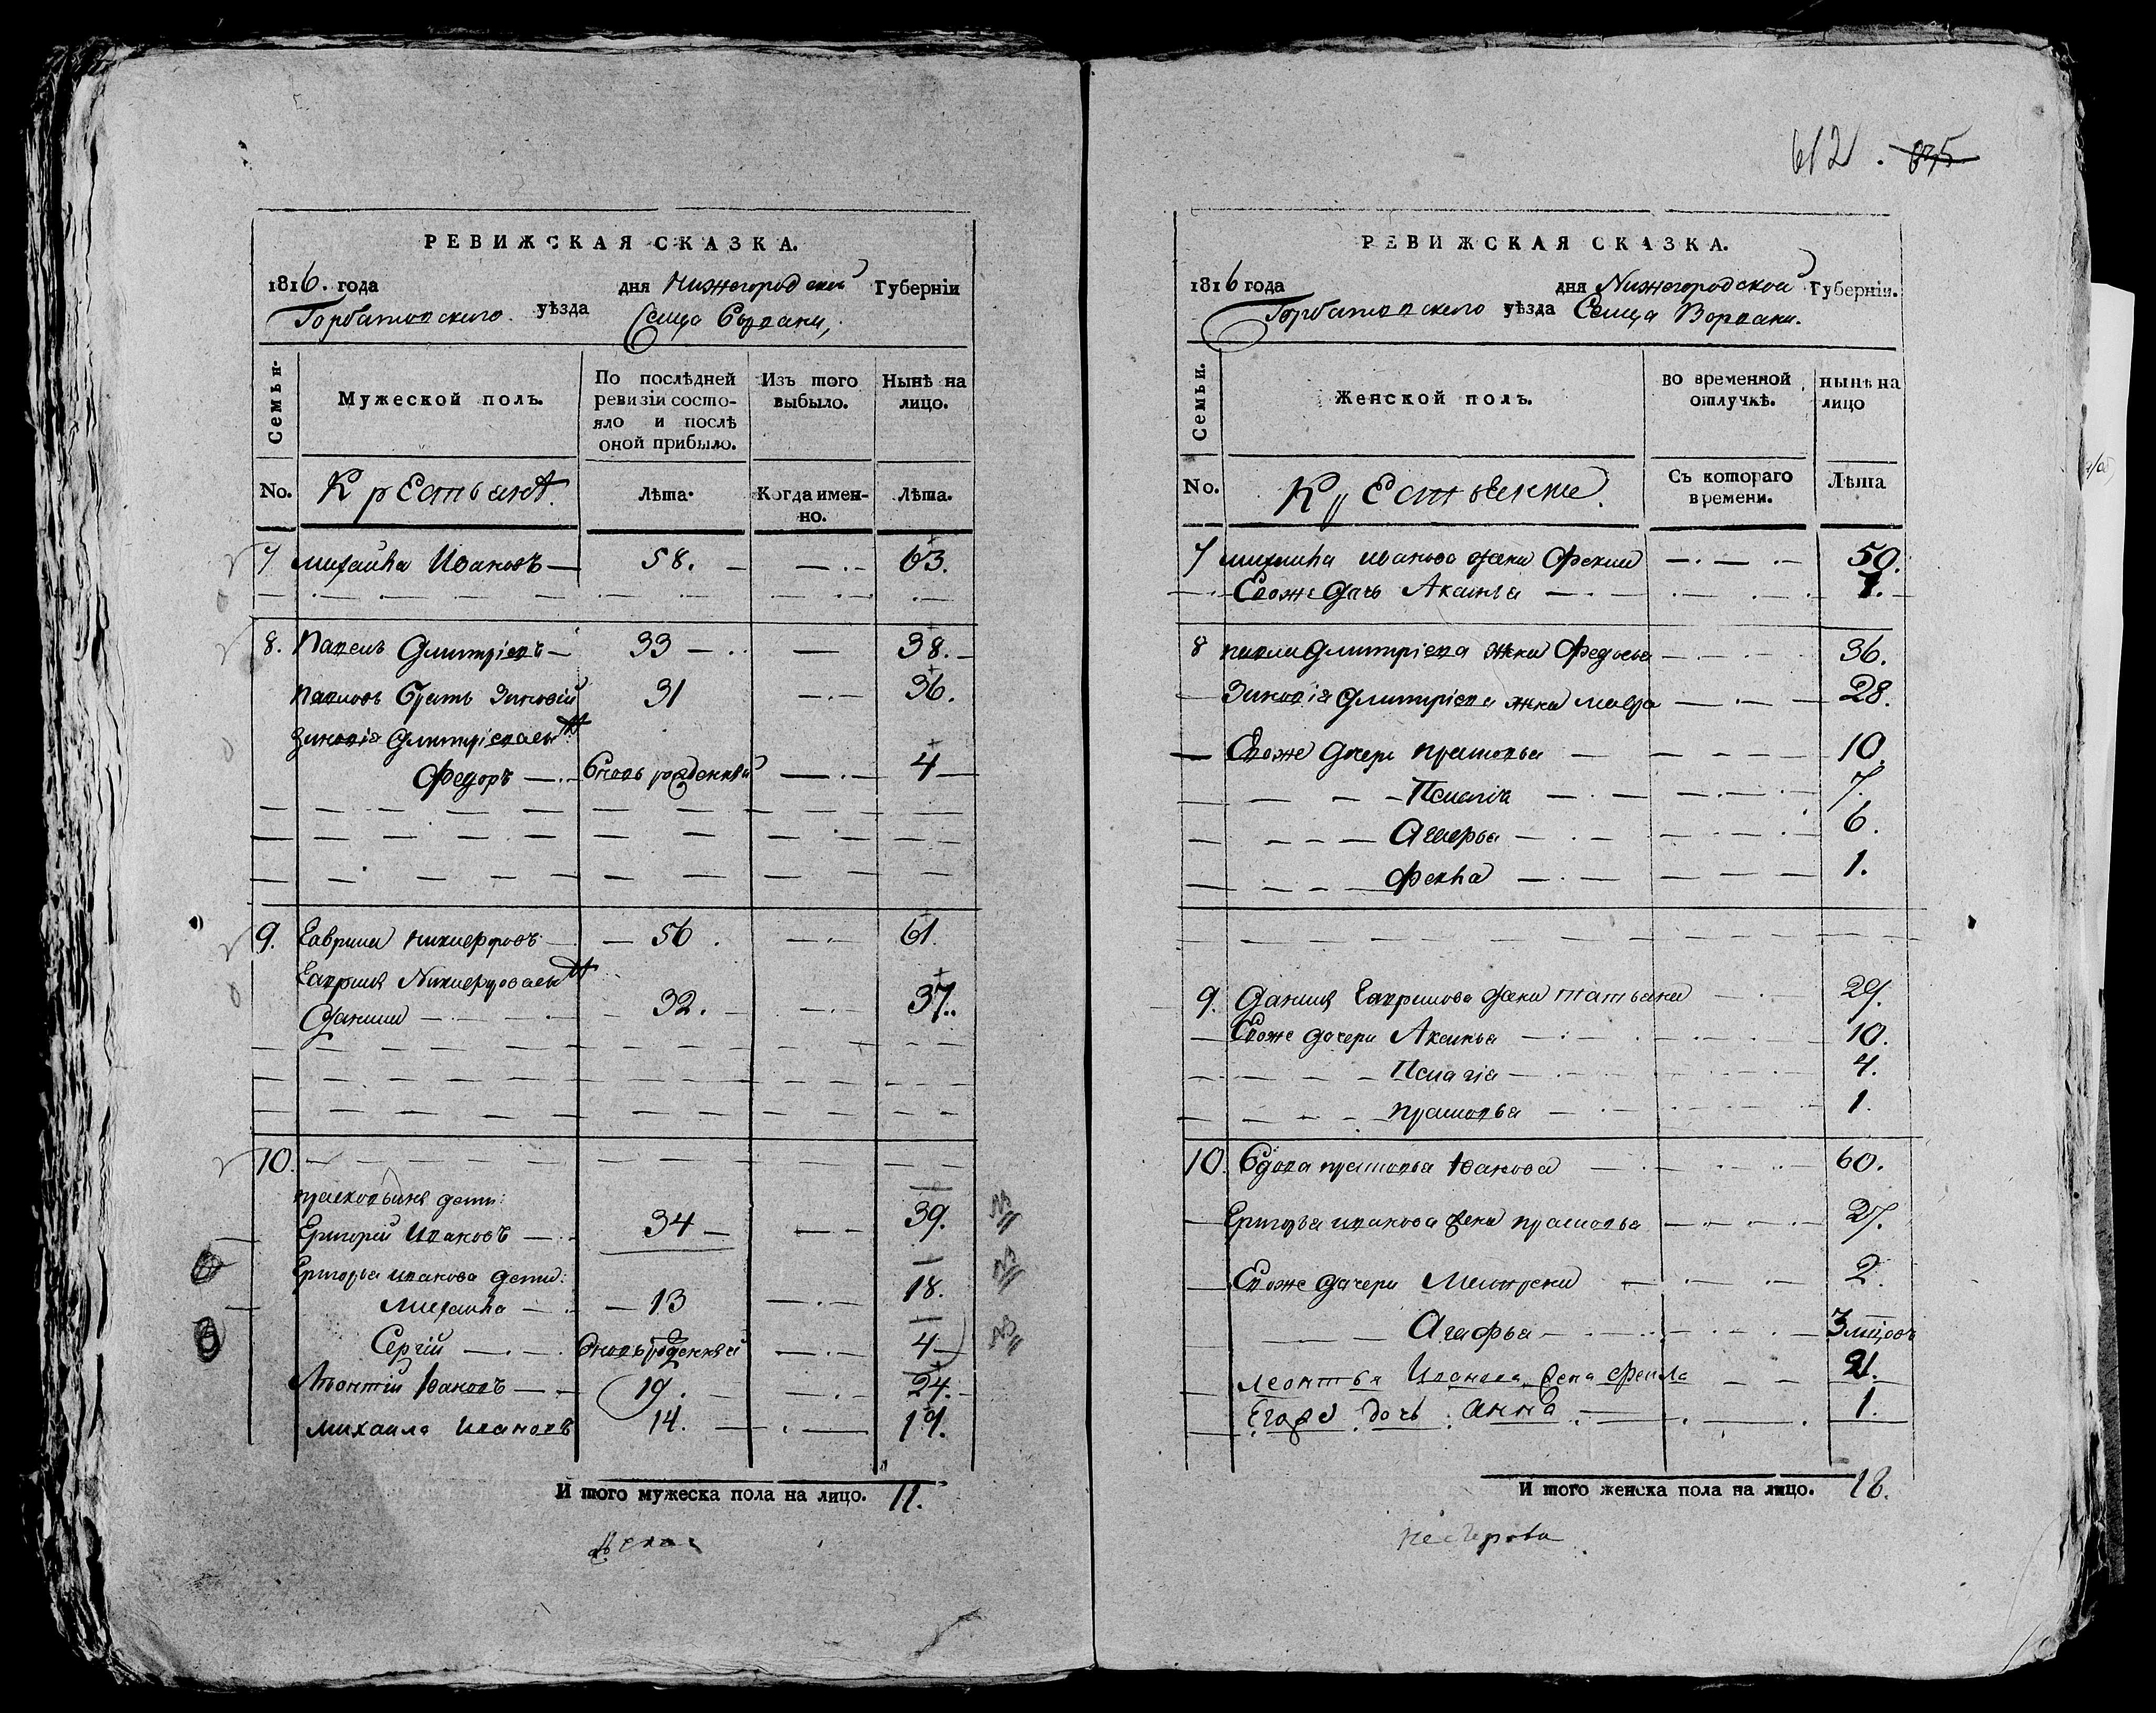 612. 875
РЕВИЖСКАЯ СКАЗКА.
1816. года дня Нижегородской Губерніи
Горбатовского уѣзда Селца Ворпани,
Семьи.
Мужеской полъ.
По послѣдней ревизіи состояло и послѣ оной прибыло.
Изъ того выбыло.
Нынѣ на лицо.
No. Крестьянѣ.
Лѣта.
Когда именно.
Лѣта.
7 Михайла Ивановъ — 58. — 63.
8. Павелъ Дмитріевъ — 33 — 38.
Павловъ братъ Зиновій 31 — 36.
Зиновія Дмитріева сынъ
Федоръ — вновь рожденный — 4
9. Гаврила Никифоровъ — 56. — 61.
Гаврилы Никифорова сынъ
Данила — 32. — 37.
10.
Прасковьины дети:
Григорей Ивановъ — 34 — 39.
Григорья Иванова дети:
Михайла — 13 — 18.
Сергій — вновь рожденный — 4
Леонтій Ивановъ — 19. — 24.
Михаила Ивановъ 14. — 19.
И того мужеска пола на лицо. 11.
РЕВИЖСКАЯ СКАЗКА.
1816 года дня Нижегородской Губерніи.
Горбатовского уѣзда Селца Ворпани.
Семьи.
Женской полъ.
во временной отлучкѣ.
нынѣ на лицо
No. Крестьянки.
Съ котораго времени.
Лѣта
7 Михаила Иванова жена Офимия — 50.
Евоже дочь Аксинья — 7.
8 Павла Дмитріева жена Федосья — 36.
Зиновія Дмитріева жена Мавра — 28.
Евоже дочери Прасковья — 10.
Пелагія — 7.
Агафья — 6.
Фекла — 1.
9. Данилы Гаврилова жена Татьяна — 29.
Евоже дочери Аксинья — 10.
Пелагія — 4.
Прасковья — 1.
10. Вдова Прасковья Иванова — 60.
Григорья Иванова жена Прасковья — 27.
Евоже дочери — 2.
Агафья — 3 мѣсяцовъ
Леонтья Иванова жена Фекла — 21.
Егоже дочь Анна — 1.
И того женска пола на лицо. 18.
Нестерова